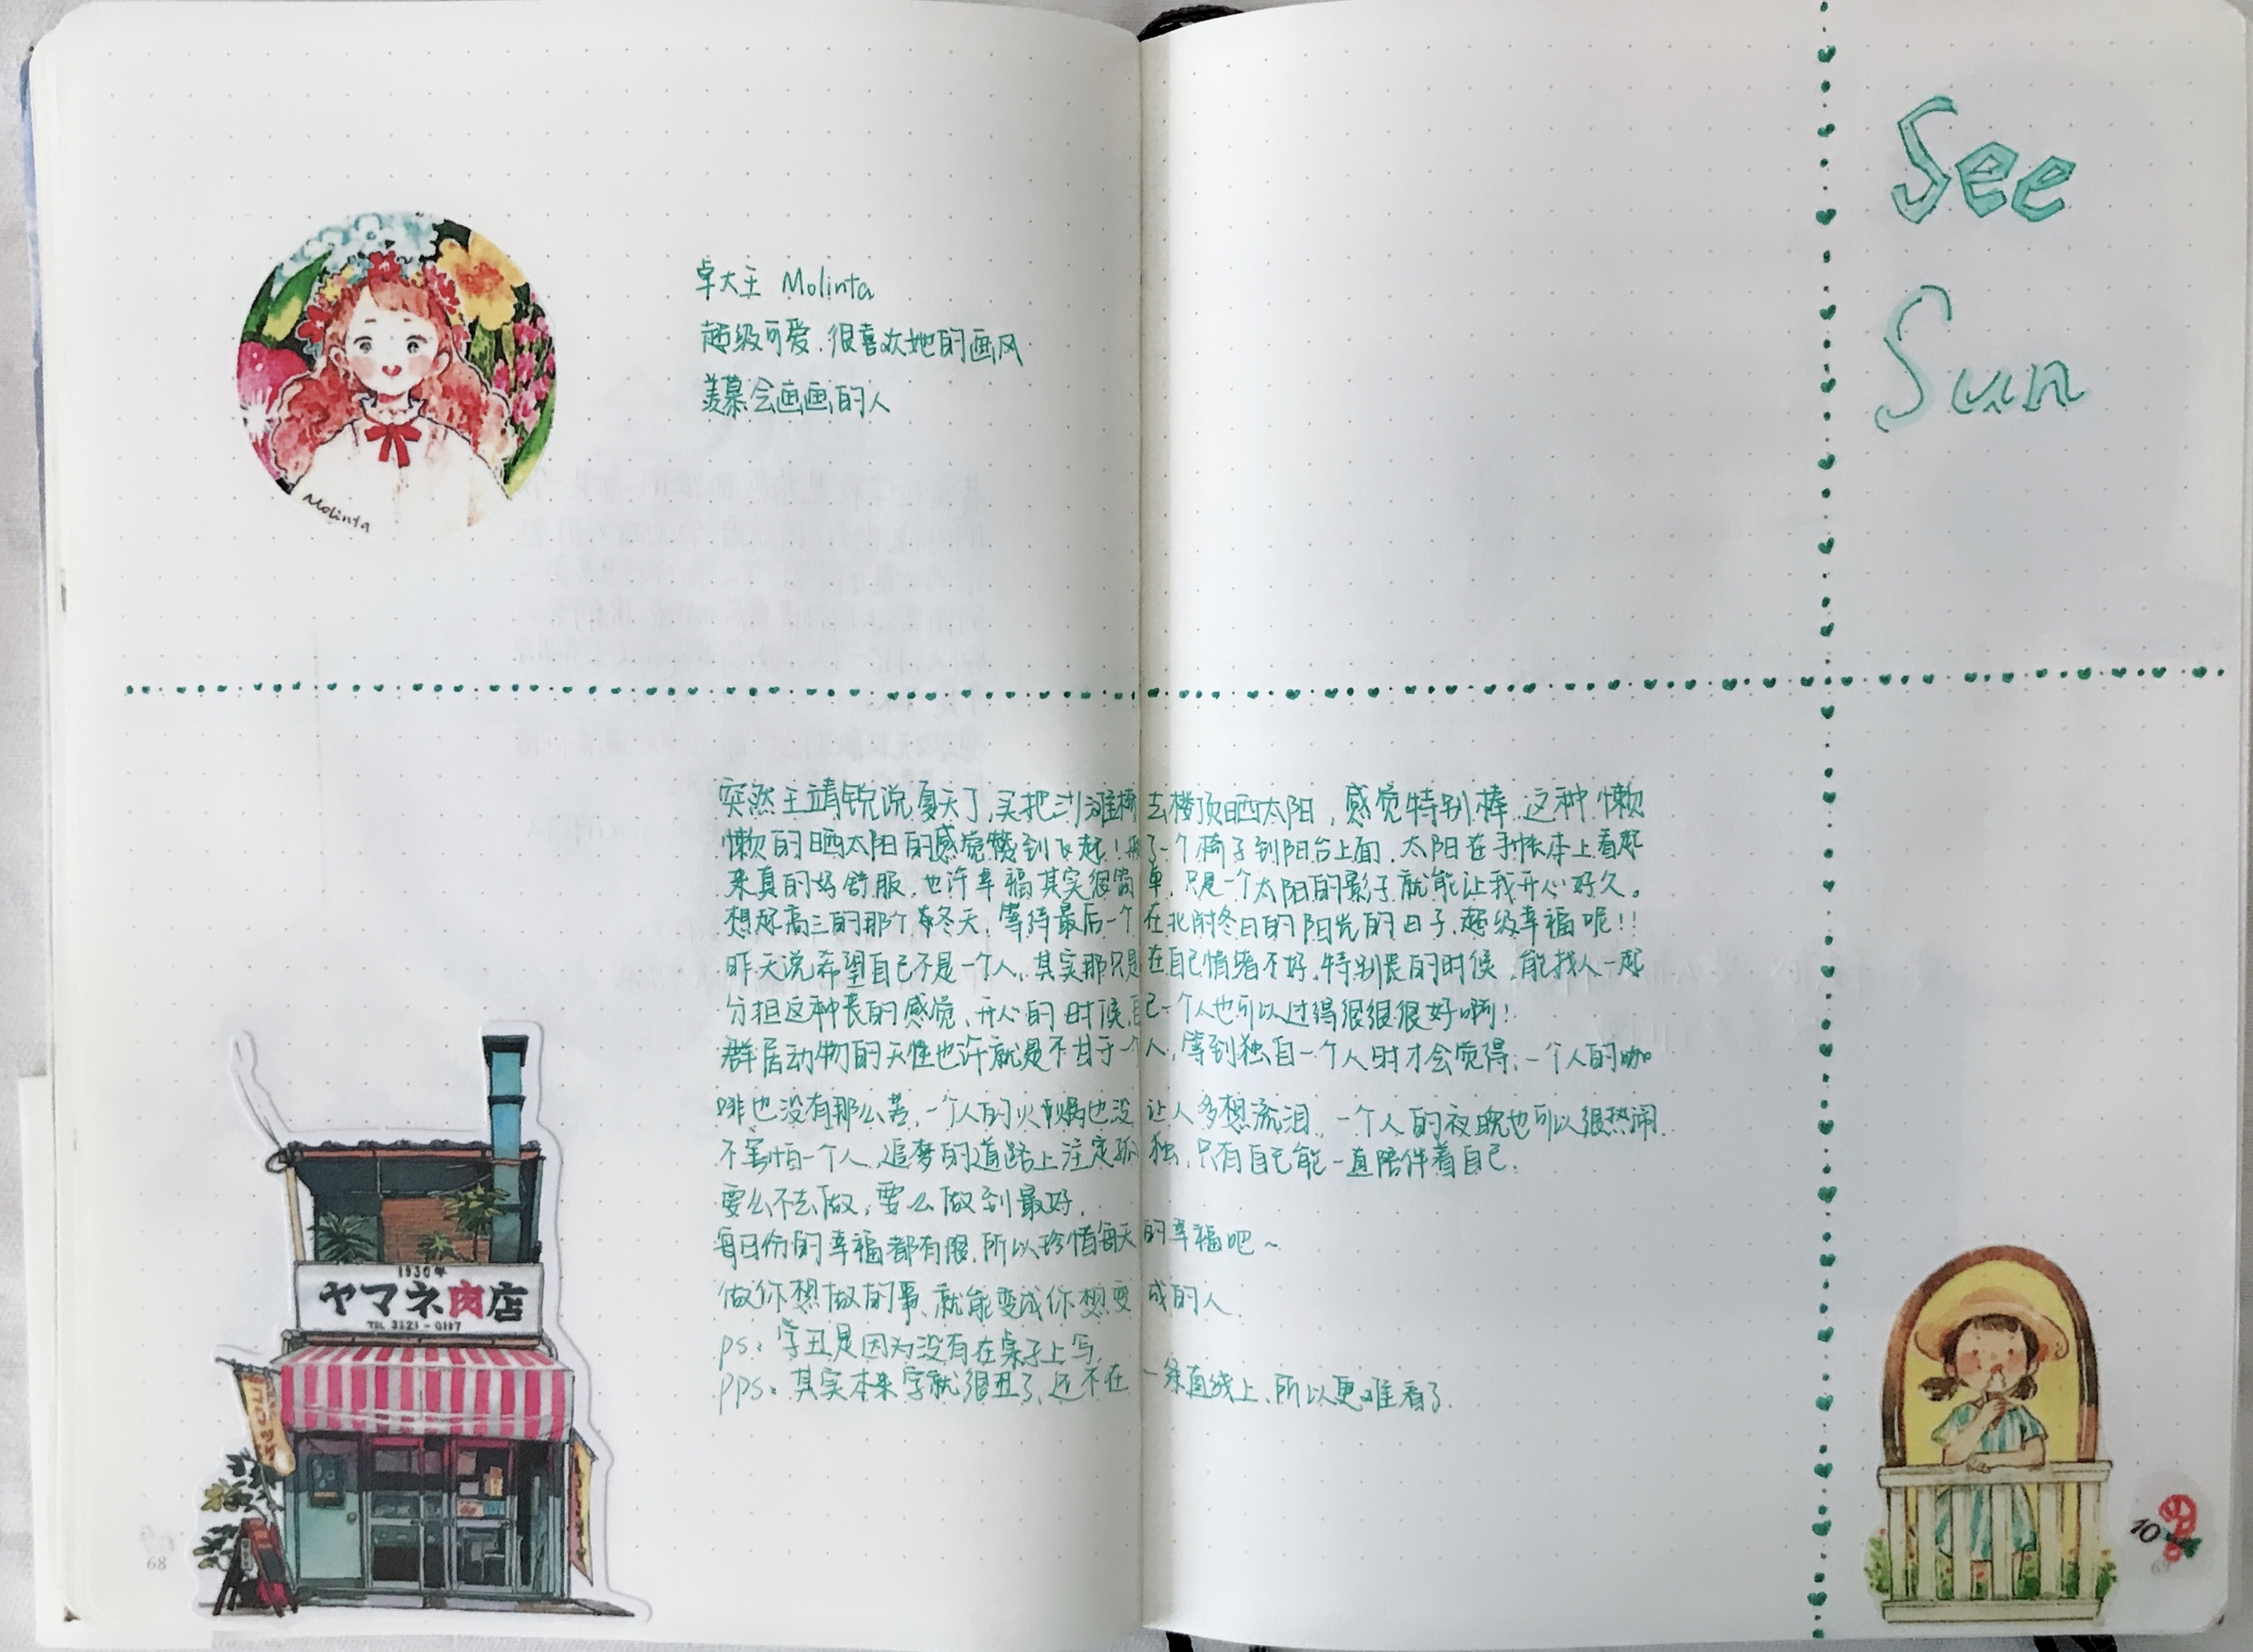 See
Sun
卓大王 Molinta
超级可爱.很喜欢她的画风
羡慕会画画的人
Molinta
突然王靖锐说夏天了,买把沙滩椅去楼顶晒太阳,感觉特别棒.这种懒
懒的晒太阳的感觉 到飞起!搬了一个椅子到阳台上面.太阳在手帐本上看起
来真的好舒服.也许幸福其实很简单.只是一个太阳的影子就能让我开心好久。
想起高三的那个冬天.等待最后一个在北 冬日的阳光的日子.超级幸福呢!!
昨天说希望自己不是一个人.其实那只是在自己情绪不好.特别丧的时候.能找人一起
分担这种丧的感觉、开心的时候,自己一个人也可以过得很很很好啊!
群居动物的天性也许就是不甘于一个人,等到独自一个人时才会觉得:一个人的咖
啡也没有那么苦,一个人的火锅也没让人多想流泪.一个人的夜晚也可以很热闹.
不害怕一个人.追梦的道路上注定孤独.只有自己能一直陪伴着自己.
要么不去做,要么做到最好.
每日份的幸福都有限.所以珍惜每天的幸福吧~
做你想做的事、就能变成你想变成的人.
ps:字丑是因为没有在桌子上写
pps:其实本来字就很丑了.还不在一条直线上、所以更难看了.
1930年
ヤマネ肉店
TEL 3121-0117
68
10
69